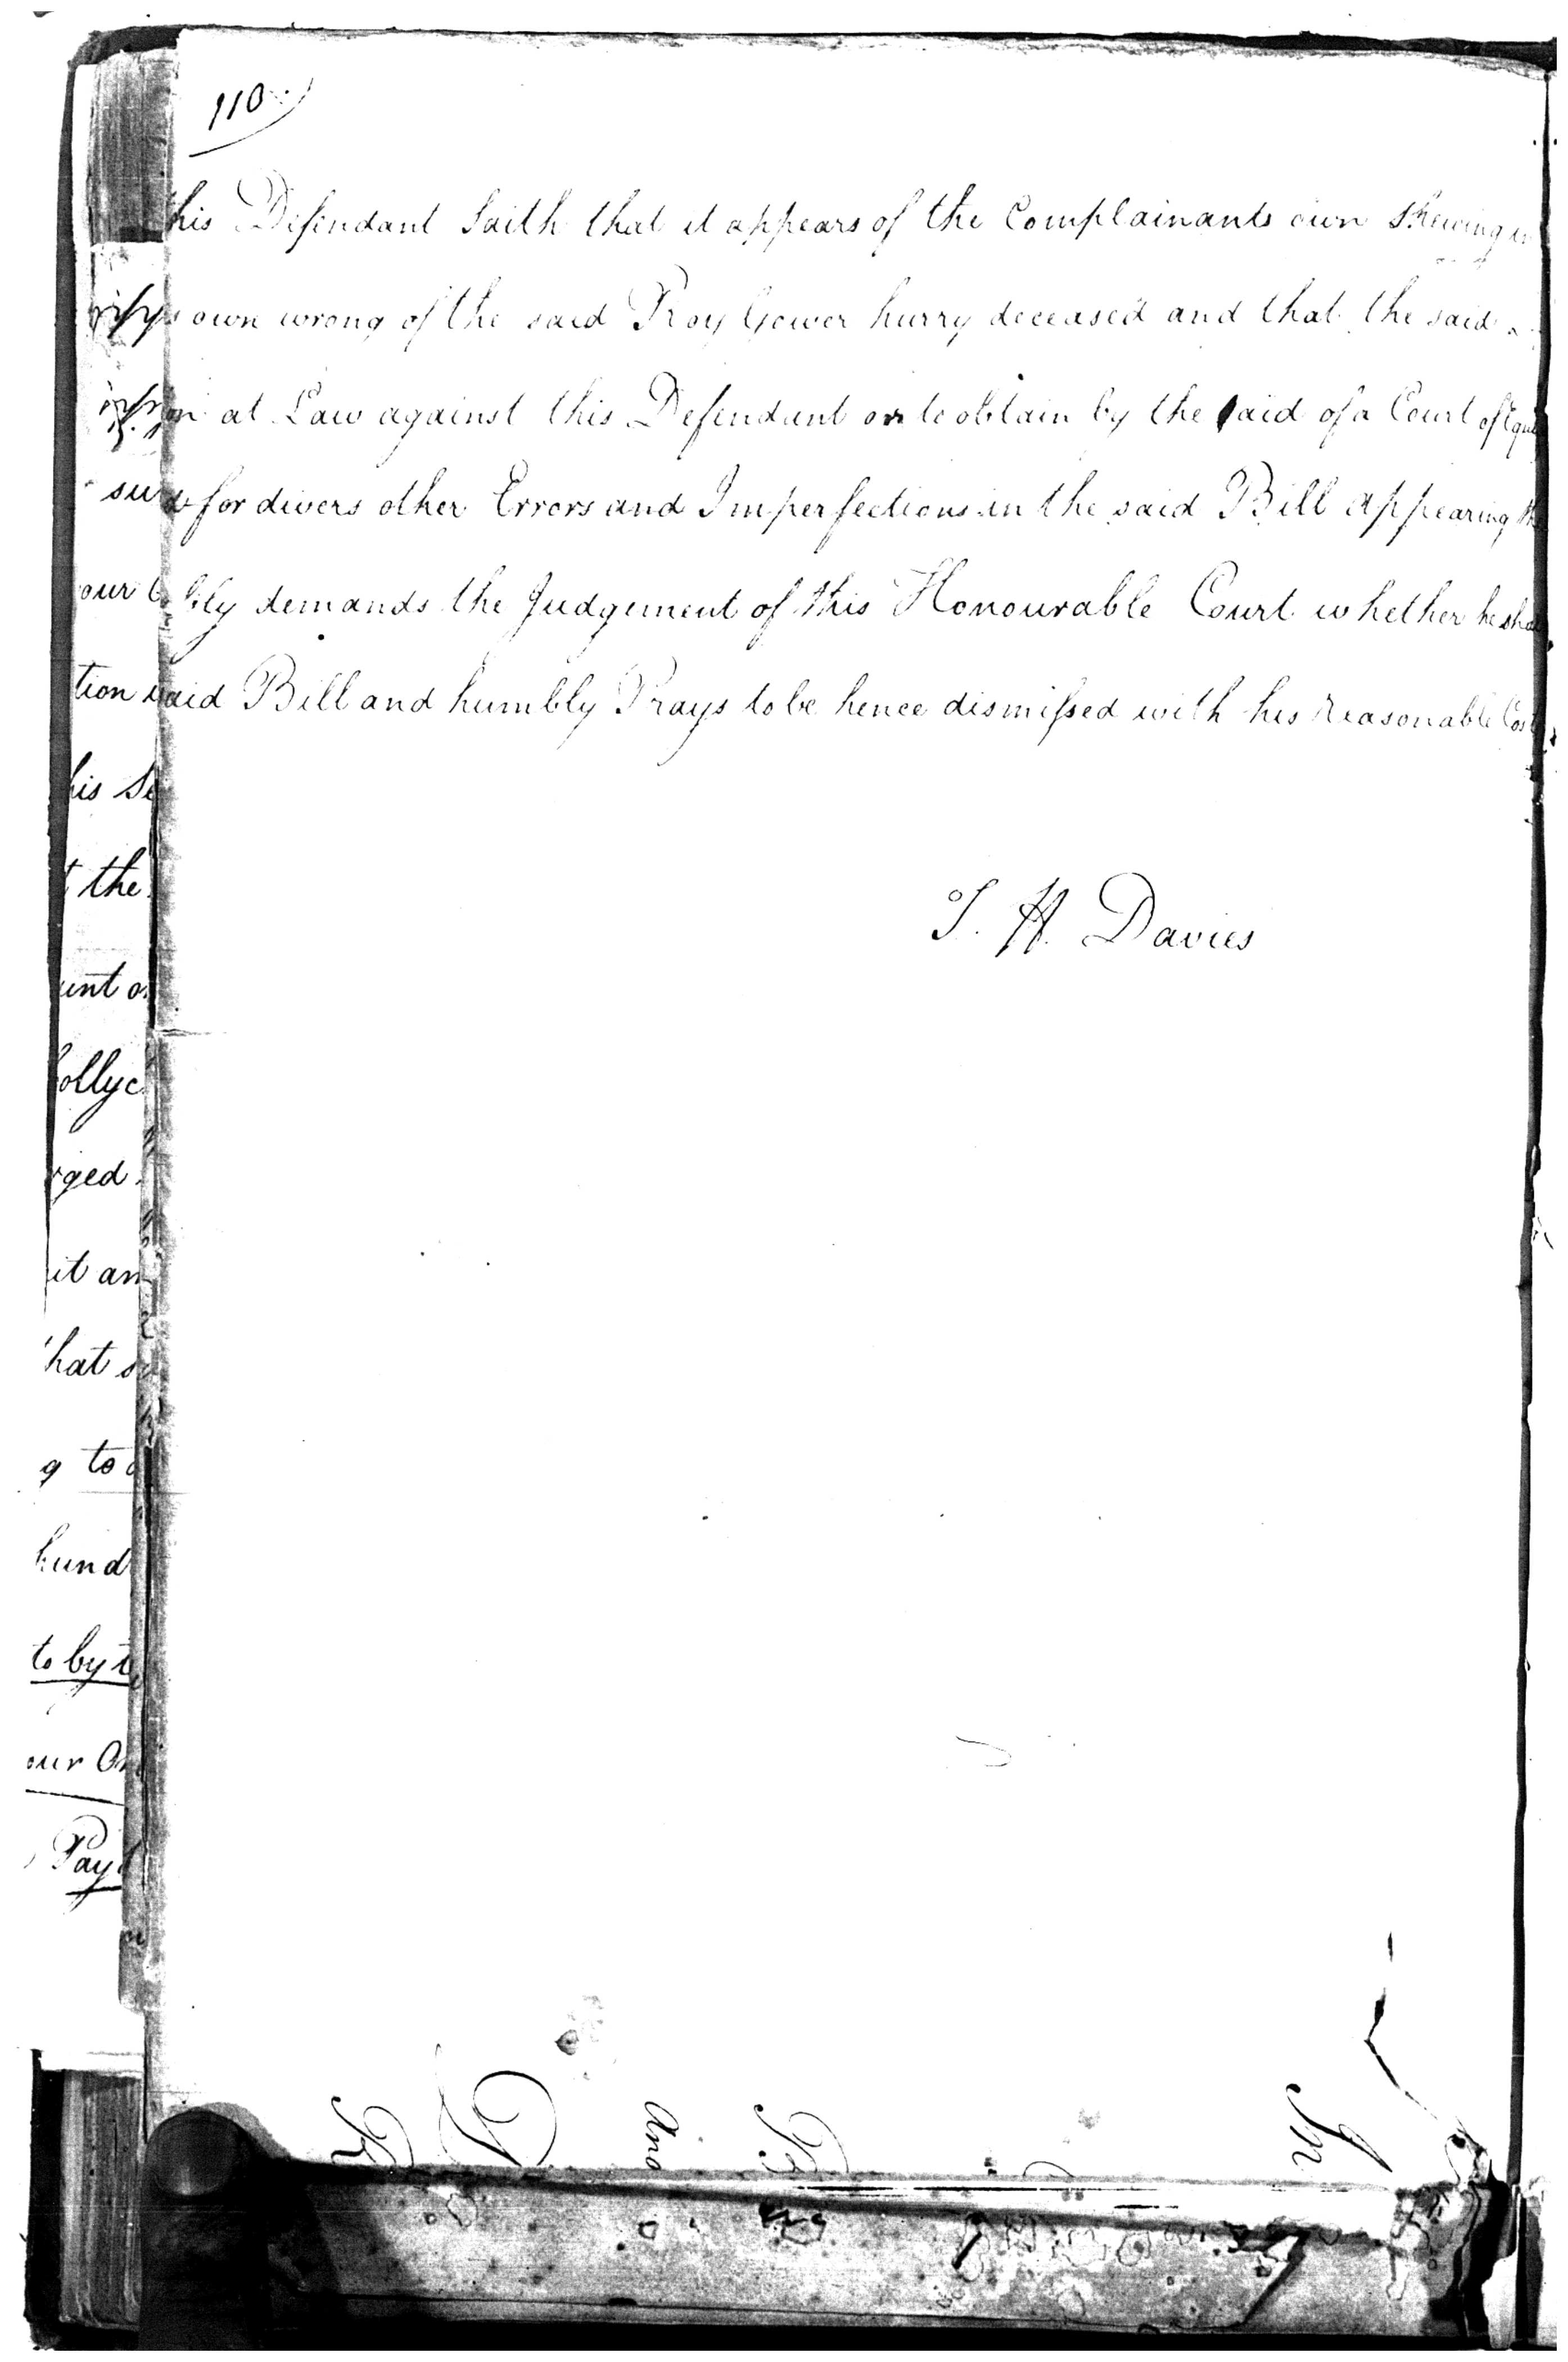 110
his Defendant Saith that it appears of the Complainants own Shewing
own wrong of the said Roy Gower hurry deceased and that the said
at Law against this Defendant or to obtain by the aid of a Court of Equi
for divers other Errors and Imperfections in the said Bill appearing th
bly demands the Judgement of this Honourable Court whether he sha
said Bill and humbly Prays to be hence dismissed with his Reasonable Cost
T. H. Davies
su
our
tion
his Se
t the
unt o
ollyc
rged
it an
hat s
g to
hund
to by t
our Or
Pay
And
In